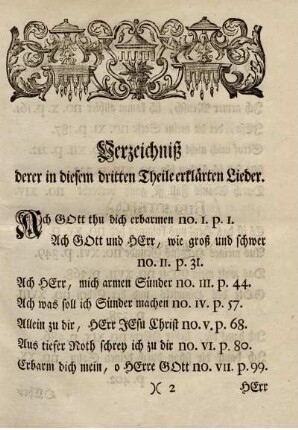 Verzeichniß
derer in diesem dritten Theile erklärten Lieder.
Ach GOtt thu dich erbarmen no. I. p. 1.
Ach GOtt und HErr, wie groß und schwer
no. II. p. 31.
Ach HErr, mich armen Sünder no. III. p. 44.
Ach was soll ich Sünder machen no. IV. p. 57.
Allein zu dir, HErr JEsu Christ no. V. p. 68.
Aus tiefer Noth schrey ich zu dir no. VI. p. 80.
Erbarm dich mein, o HErre GOtt no. VII. p. 99.
)( 2 HErr